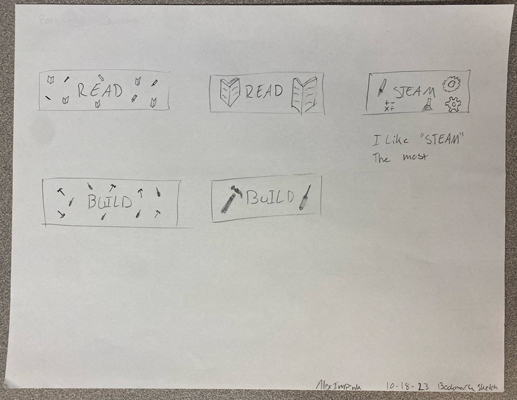 READ
READ
STEAM
+-
×÷
I Like "STEAM"
The most
BUILD
BUILD
10-18-23 Bookmark Sketch